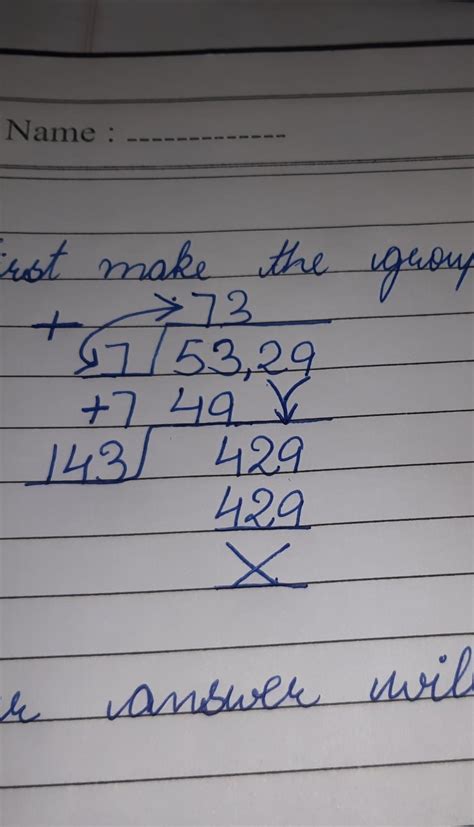 Name : -------------
irst make the group
+ 73
7 53,29
+7 49
143 429
429
X
answer wil